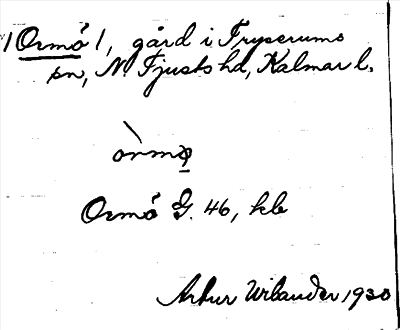 1 Ormö 1, gård i Tryserums
sn, N. Tjusts hd, Kalmar l.
òrmø̣
Ormö G. 46, kb
Arthur Wilander 1930